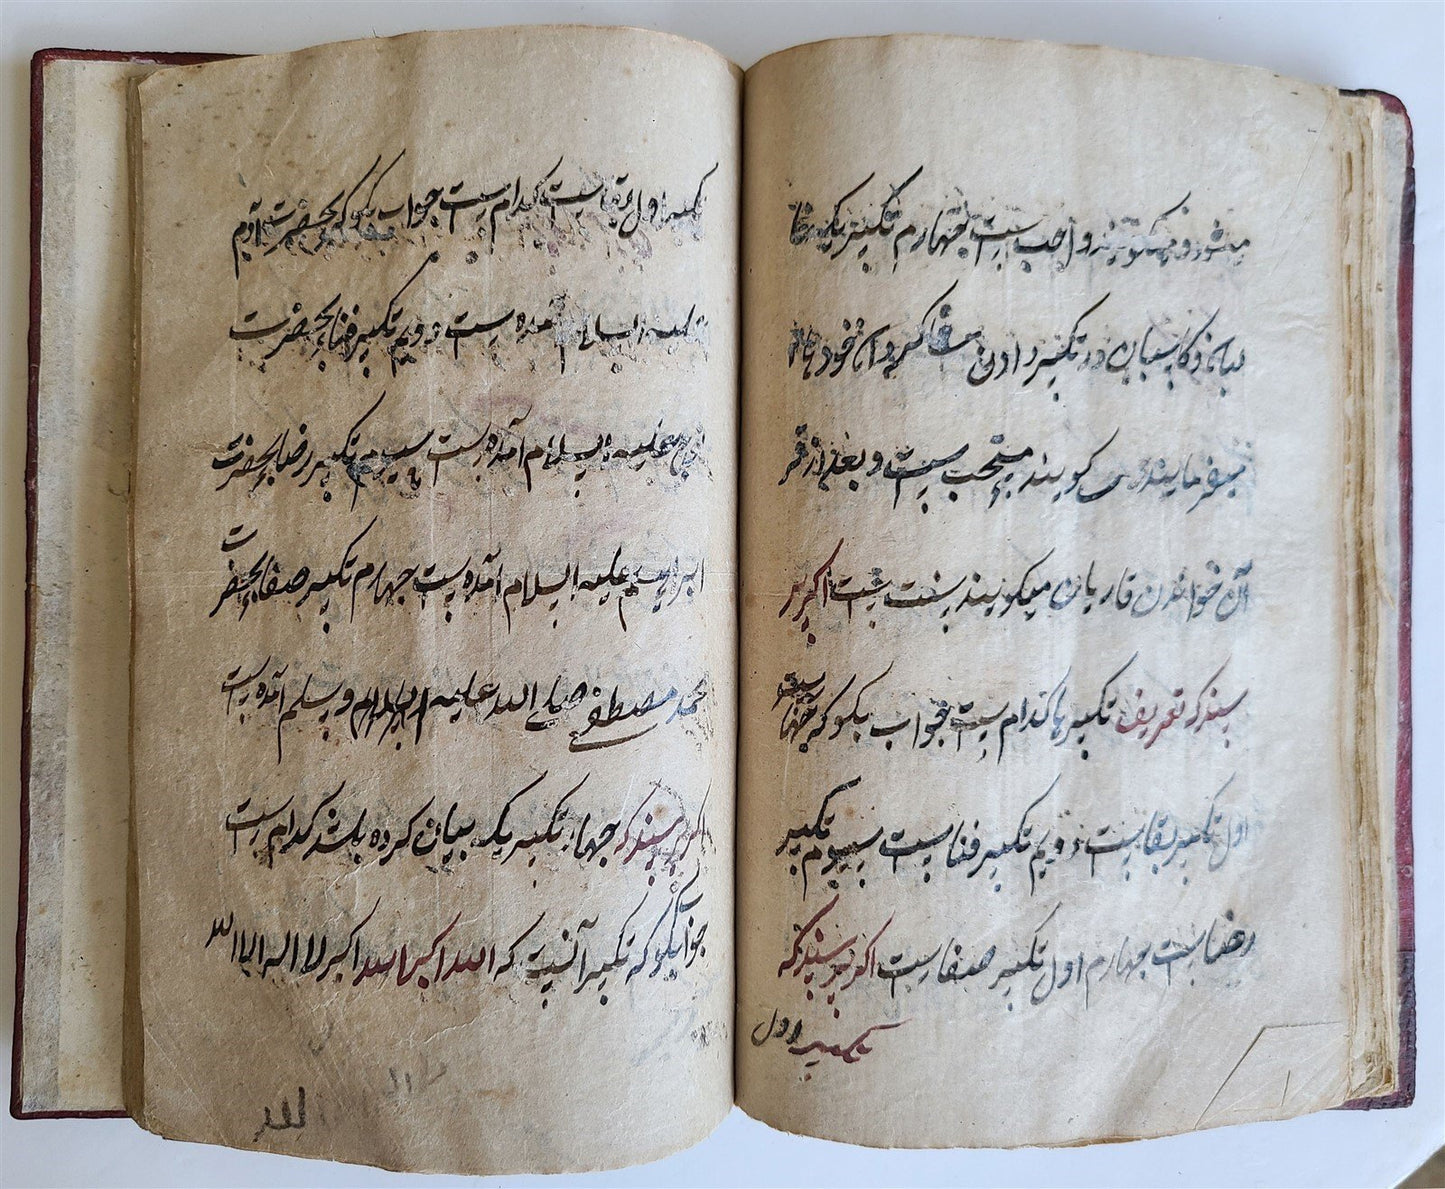 میشود و میگویند واجب است چهارم تکبیر یکه
در تکبیر دادن خود
میفرمایند می گویند مستحب است و بعد از
آن خواندن قاریان میگویند سنت است اگر
پرسند که تعریف تکبیرها کدام است جواب بگو که
اول تکبیر بقا است دویم تکبیر فنا است سیوم تکبیر
رضا است چهارم اول تکبیر صفا است اگر پرسند که
تکبیر اول
تکبیر اول بقا است کدام است جواب بگو که بحضرت آدم
علیه السلام آمده است دویم تکبیر فنا بحضرت
نوح علیه السلام آمده است سیوم تکبیر رضا بحضرت
ابراهیم علیه السلام آمده است چهارم تکبیر صفا بحضرت
محمد مصطفی صلی الله علیه و سلم آمده است
اگر پرسند که چهار تکبیر یکه بیان کرده باشد کدام است
جواب بگو که تکبیر آنست که الله اکبر الله اکبر لا اله الا الله